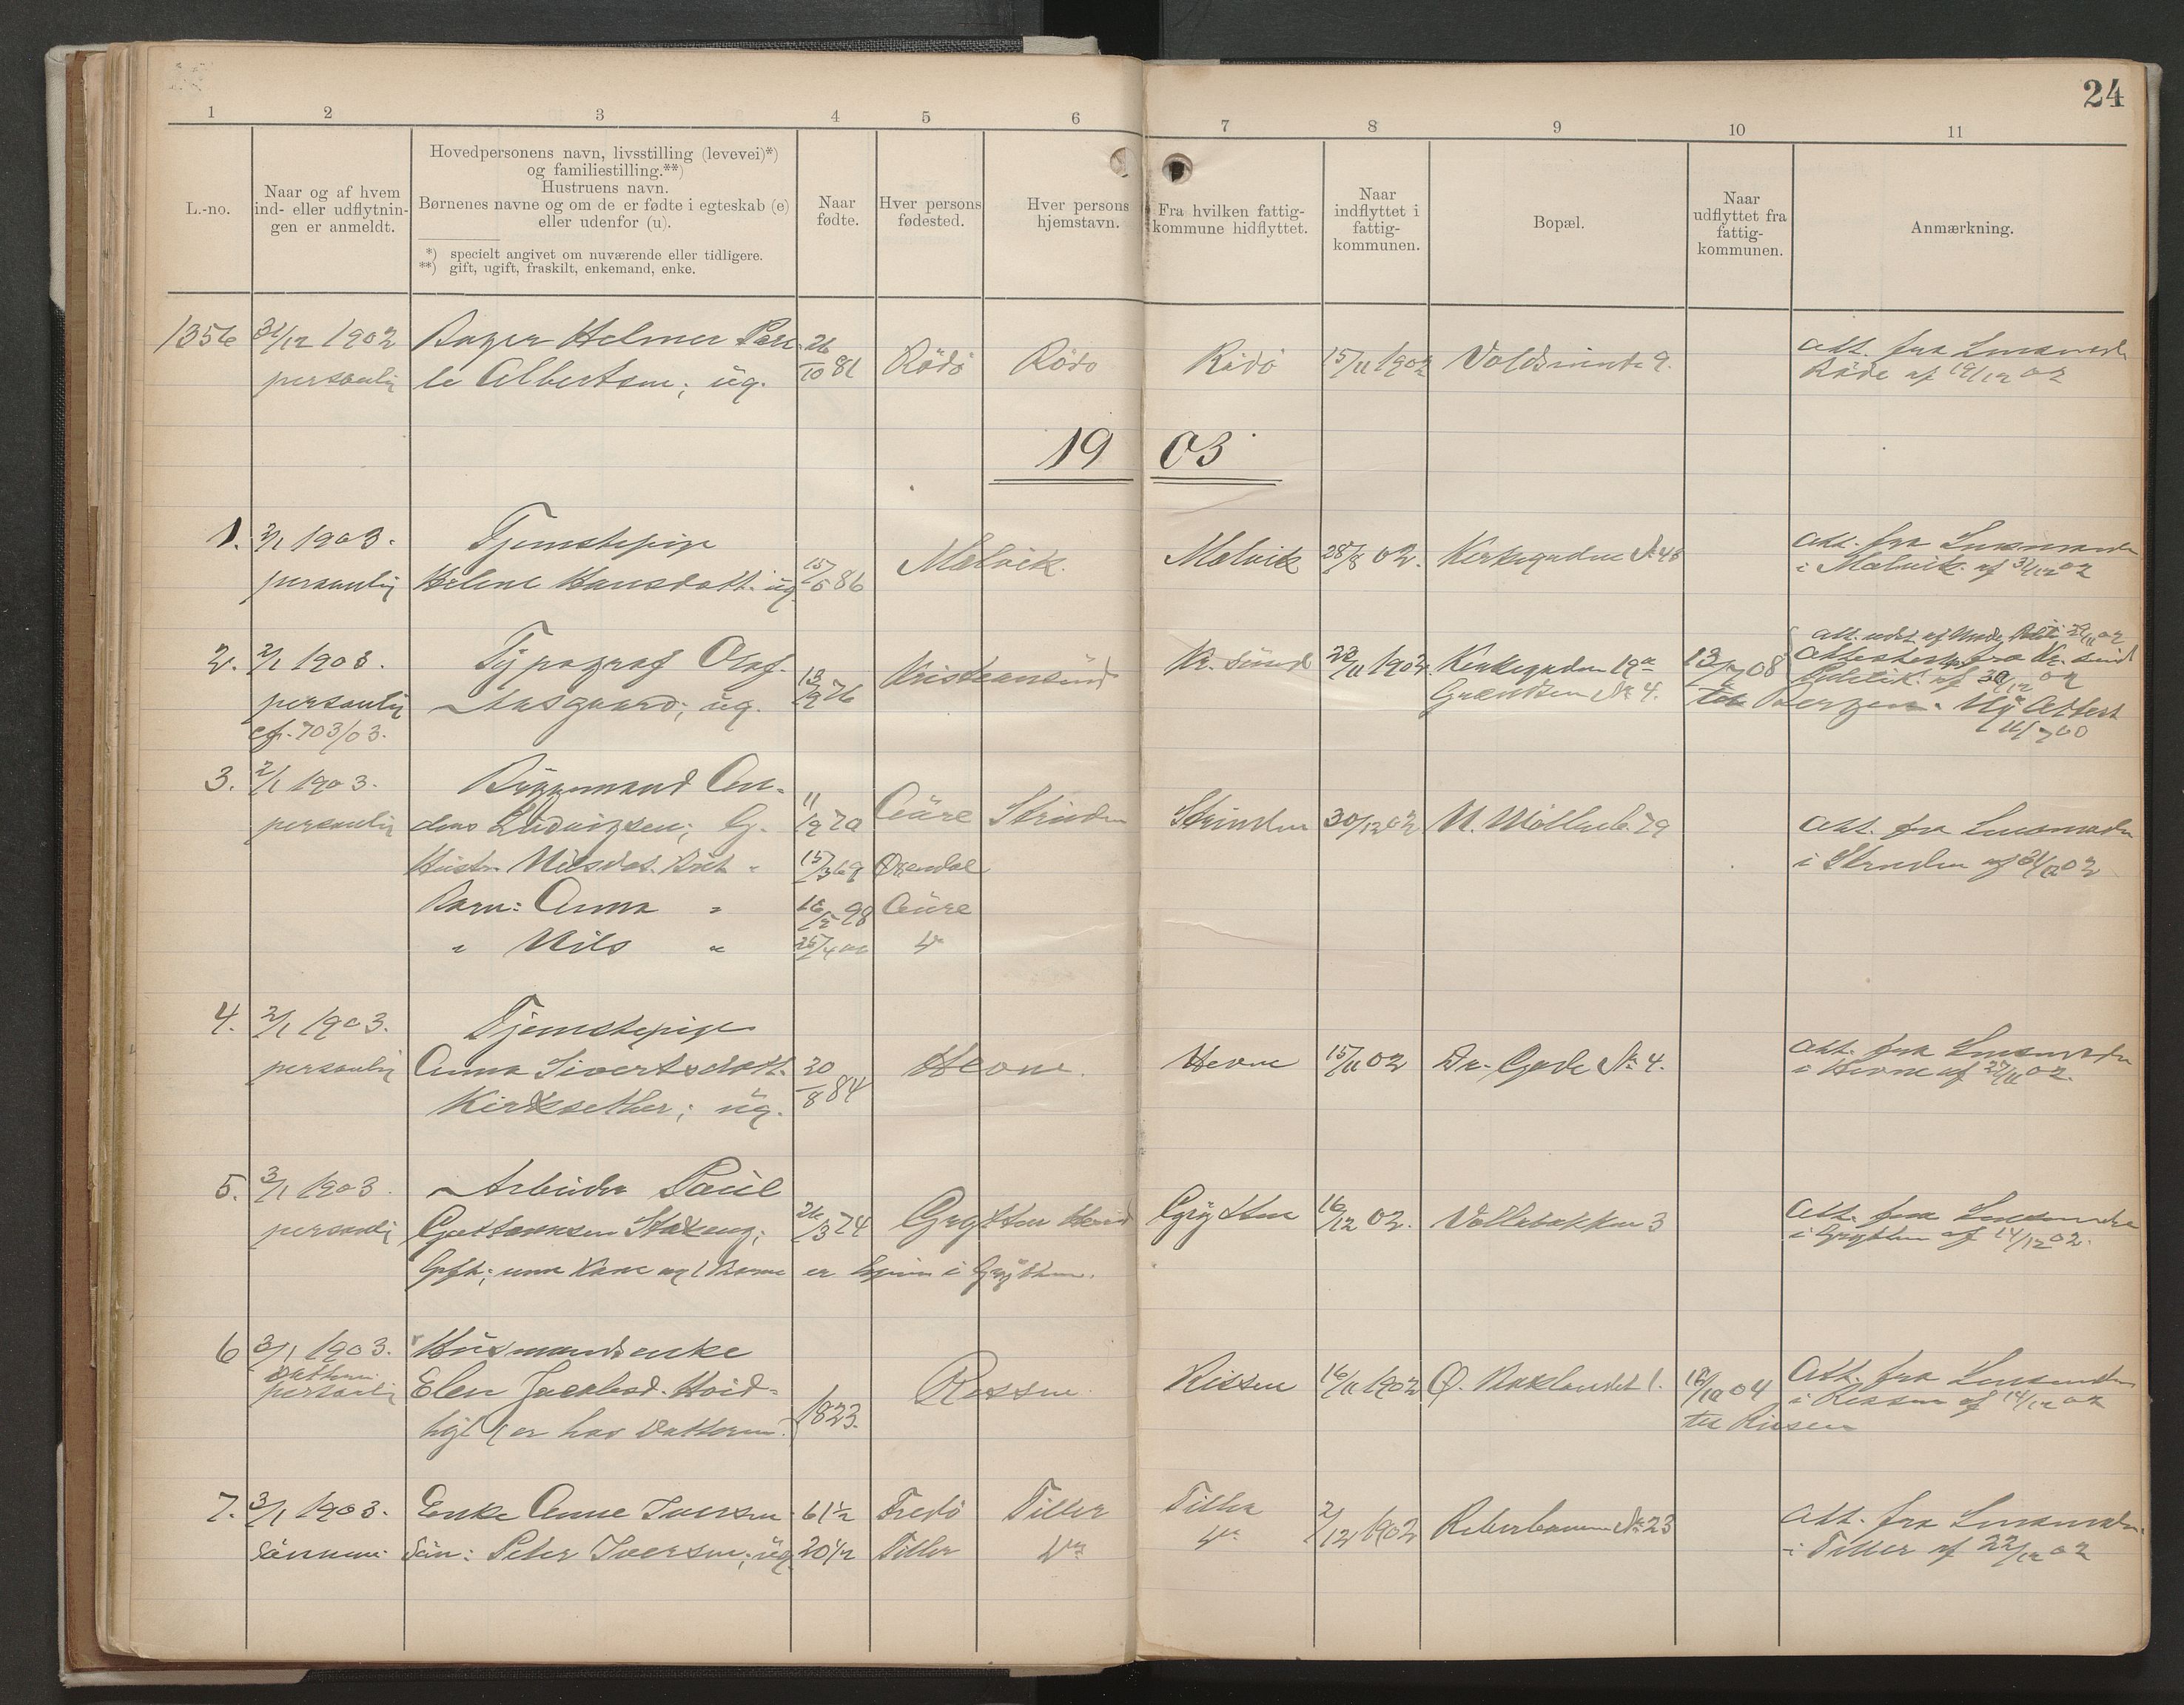 24
1 2 3 4 5 6 7 8 9 10 11
L.-no.
Naar og af hvem
ind- eller udflytnin-
gen er anmeldt.
Hovedpersonens navn, livsstilling (levevei)*)
og familiestilling.**)
Hustruens navn.
Børnenes navne og om de er fødte i egteskab (e)
eller udenfor (u).
*) specielt angivet om nuværende eller tidligere.
**) gift, ugift, fraskilt, enkemand, enke.
Naar
fødte.
Hver persons
fødested.
Hver persons
hjemstavn.
Fra hvilken fattig-
kommune hidflyttet.
Naar
indflyttet i
fattig-
kommunen.
Bopæl.
Naar
udflyttet fra
fattig-
kommunen.
Anmærkning.
1356 31/12 1902 Bager Helmer Pau- 26/10 81 Rödö Rödö Rödö 15/11 1902 Voldsminde 9. Att. fra Lensmand
personlig le Albertsen; ug. Röde af 19/12 02
1903
1. 2/1 1903. Tjenstepige Malvik. Malvik 28/8 02. Kirkegaden № 48 Att. fra Lensmanden
personlig Helene Hansdatt. ug. 15/5 86 i Malvik af 31/12 02
2. 2/1 1903. Typograf Olaf 13/9 76 Kristiansund Kr. sund 28/11 1902 Kirkegaden 19a 13/7 08 Attester fra Kr. sund
personlig Aasgaard; ug. № 4. til Bergen. Ny Attest
cfr. 703/03.
3. 2/1 1903. Byggmand An-
personlig ders Ludvigsen; G. 11/9 70 Aure Strinden Strinden 30/12 02 N. Möllenb. 79 Att. fra Lensmanden
Hustr. Nilsdat. " 15/3 69 Øxendal i Strinden af 31/12 02
Barn: Anna " 16/5 98 Aure
" Nils " 25/4 00 do
4. 2/1 1903. Tjenstepige
personlig Anna Sivertsdatt. 20/8 84 Hevne. Hevne 15/11 02 Dr. Gade № 4. Att. fra Lensmanden
Kirksether; ug. i Hevne af 27/11 02.
5. 3/1 1903. Arbeider Paul
personlig Stokeng; 26/3 74 Grytten Grytten 16/12 02. Vollabakken 3 Att. fra Lensmanden
Gift; men Kone og 1 Barn er igjen i Grytten. i Grytten af 14/12 02.
6 3/1 1903. Husmandsenke
Datteren
personlig Elen Jacobsd. Hvid- 1823. Rissen Rissen 16/11 1902 Ø. Baklandet 1. 18/10 04 Att. fra Lensmanden
(er hos Datteren) til Rissen i Rissen af 14/12 02
7. 3/1 1903. Enke Anne Iversen 61½ Fredö Tiller Tiller 2/12 1902 Reberbanen № 23 Att. fra Lensmanden
Sönnen Sön: Peter Iversen; ug. 20½ Tiller do do i Tiller af 22/12 02